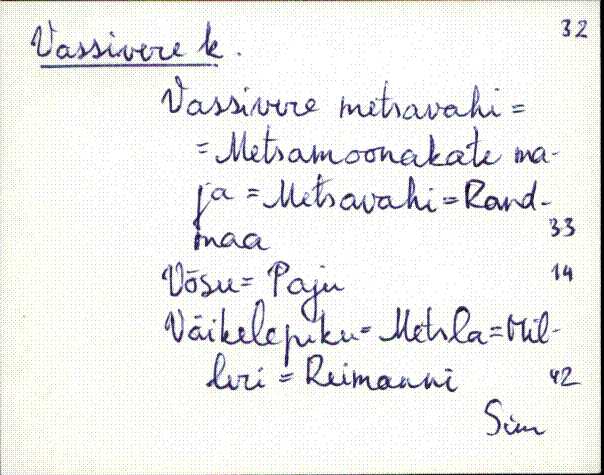 32
Vassivere k.
Vassivere metsavahi =
= Metsamoonakate ma-
ja = Metsavahi = Rand-
maa 33
Võsu = Paju 14
Väikelepiku = Metsla = Mil-
leri = Reimanni 42
Sim